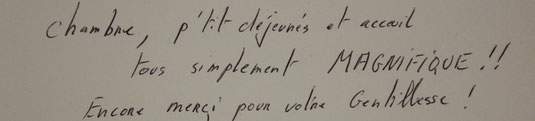 Chambre, p'tit déjeunés et acceuil
tous simplement MAGNIFIQUE !!
Encore merçi pour votre Gentillesse !